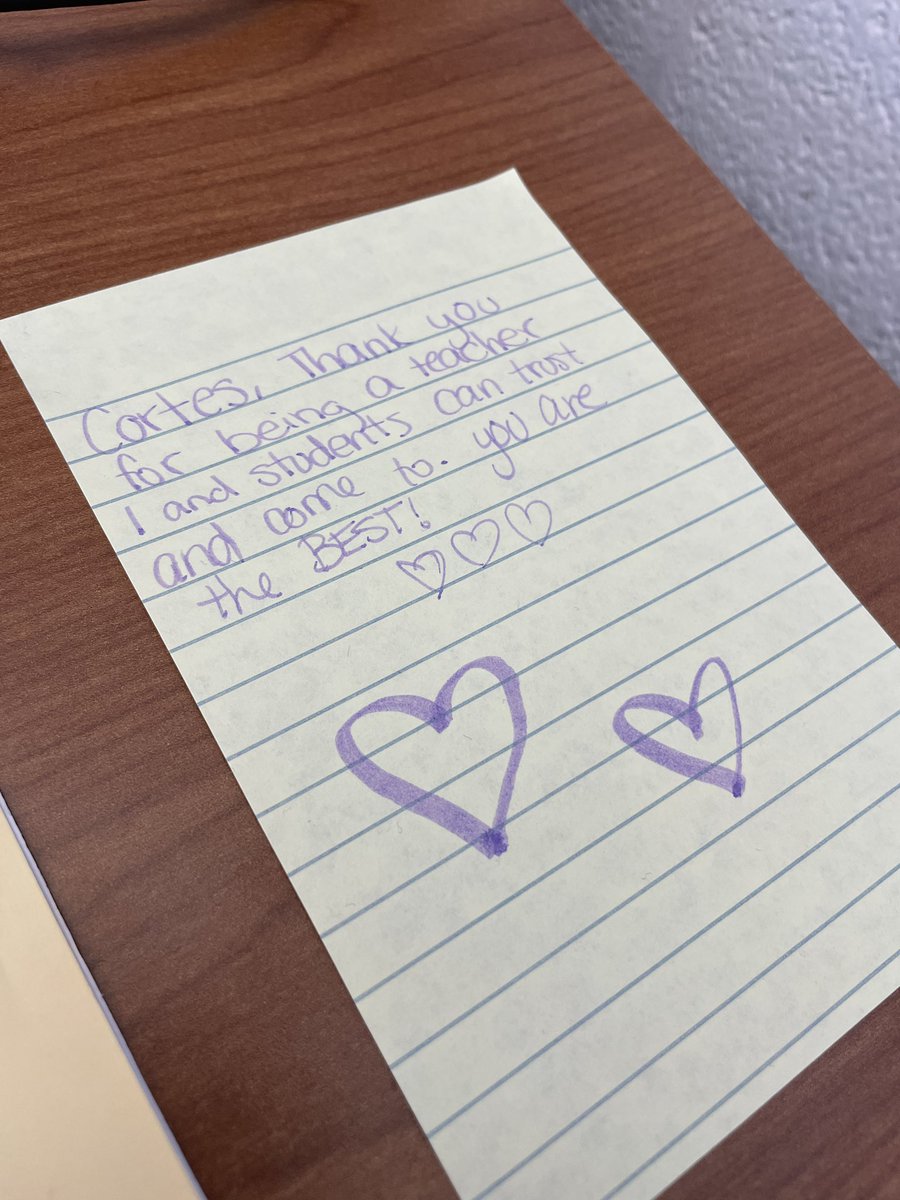 Cortes, Thank you
for being a teacher
I and students can trust
and come to. you are
the BEST!